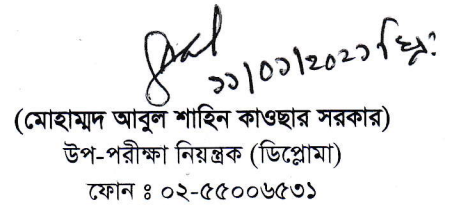 ১১/০১/২০২১ খ্রি:
(মোহাম্মদ আবুল শাহিন কাওছার সরকার)
উপ-পরীক্ষা নিয়ন্ত্রক (ডিপ্লোমা)
ফোন ঃ ০২-৫৫০০৬৫৩১